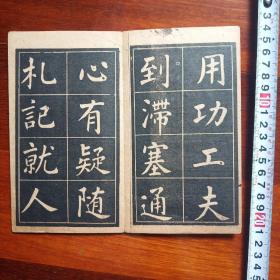 用功工夫
到滞塞通
心有疑随
札記就人